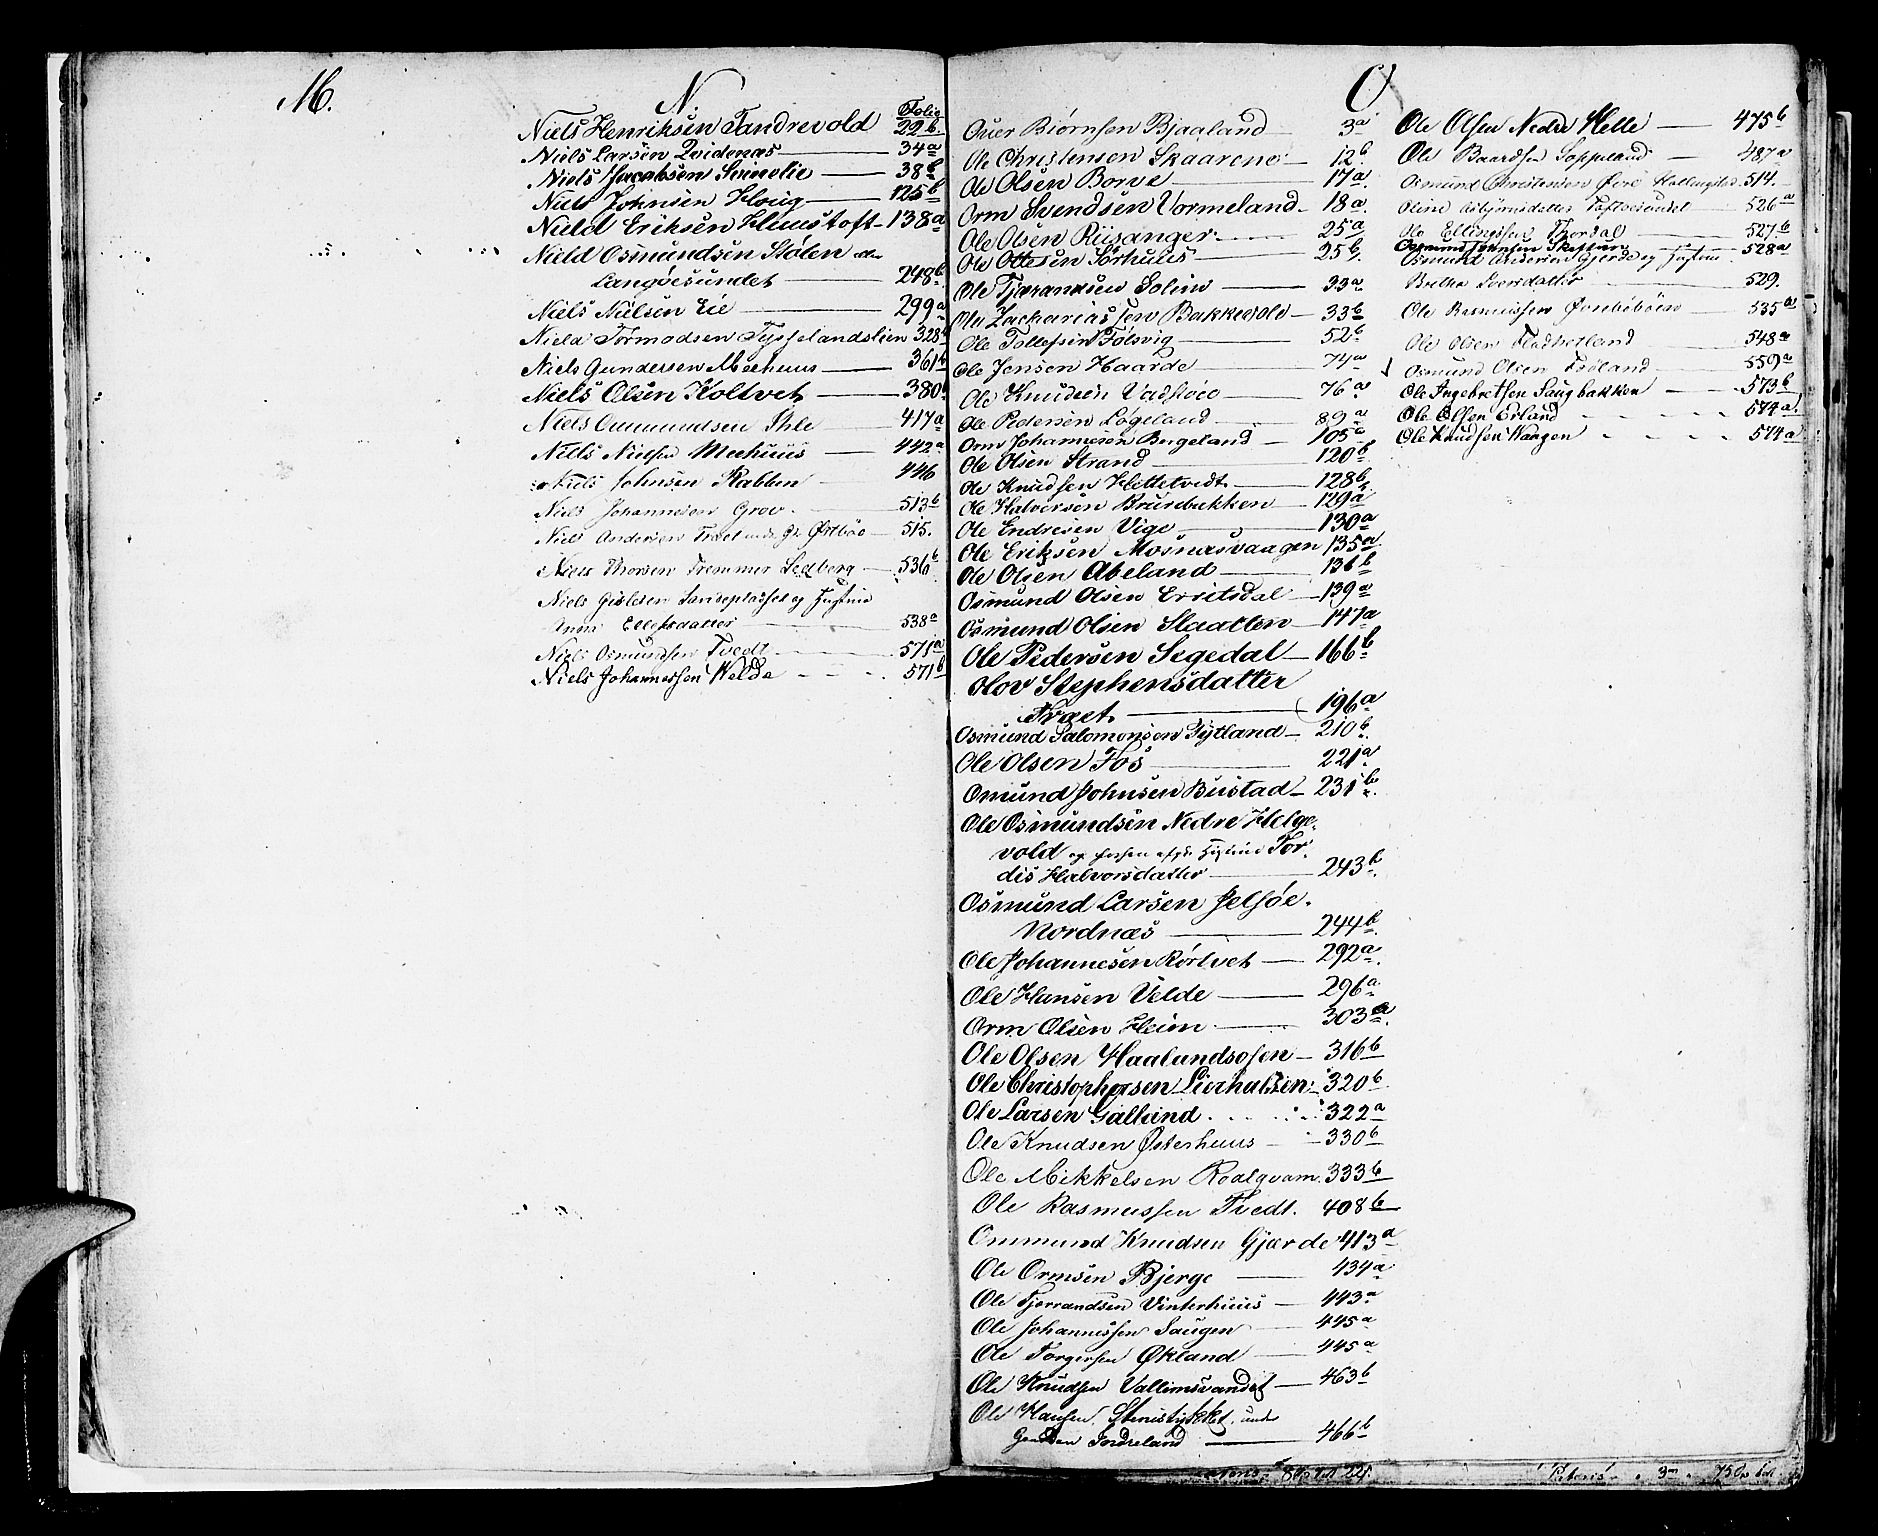 M.
N.
Folio
Niels Henriksen Tandrevold 22b.
Niels Larsen Qvidenæs 34a
Niels Jacobsen 38b
Niels Johnsen Houg 125b
Nield Eriksen Huustoft 138a
Nield Osmundsen Stølen
Langøesundet 248b
Niels Nielsen Eie 299a
Nield Tormodsen Tysselandslien 328b
Niels Gundersen Meehuus 361b
Niels Olsen Koltvet 380b
Niels Ommundsen Ihle 417a
Niels Nielsen Meehuus 442a
Niels Johnsen Rabben 446
Niels Johannesen Grov 513b
Niels Andersen Østbøe 515.
Niels Thorsen Tremmer Sedberg 536b
Niels Gislesen Sandepladset og Hustrue
Anna Ellefsdatter 538a
Niels Osmundsen Tvedt 571a
Niels Johannessen Welde 571b
O
Ouer Biørnsen Bjaaland 3a
Ole Christensen Skaarene 12b
Ole Olsen Borve 17a
Orm Svendsen Vormeland 18a.
Ole Olsen Riisanger 25a
Ole Ottesen Sørhuus 25b.
Ole Tjærandsen Solim 33a.
Ole Zachariassen Bakkevold 33b
Ole Tollefsen Følsvig 52b
Ole Jensen Haarde 74a
Ole Knudsen Vadsøe 76a
Ole Pedersen Løgeland 89a
Orm Johannesen Bugeland 105a
Ole Olsen Strand 120b
Ole Knudsen Hettetvedt 128b.
Ole Halvorsen Brurebakken 129a
Ole Endresen Vige 130a
Ole Eriksen Mosnæsvaagen 135a.
Ole Olsen Abeland 136b
Osmund Olsen Erritsdal 139a
Osmund Olsen Slaatten 147a
Ole Pedersen Segedal 166b
Olov Stephensdatter
Træet 196a
Osmund Salomonsen Tytland 210b.
Ole Olsen Fos 221a
Omund Johnsen Bustad 231b.
Ole Osmundsen Nedre Helge-
vold og Tor-
dis Halvorsdatter 243b.
Osmund Larsen Jelsøe-
Nordnæs 244b.
Ole Johannesen Rørtvet 292a.
Ole Hansen Velde 296a
Orm Olsen Heim 303a.
Ole Olsen Haalandsosen 316b
Ole Christophersen Lierhalsen 320b
Ole Larsen Galland 322a
Ole Knudsen Østerhuus 330b
Ole Mikkelsen Roalqvam 333b
Ole Rasmussen Tvedt. 408b
Ommund Knudsen Gjærde 413a
Ole Ormsen Bjerge 434a
Ole Tjerrandsen Vinterhuus 443a
Ole Johannessen Saugen 445a
Ole Torgersen Økland 445a
Ole Knudsen Vallemsvandet 463b
Ole Hansen Stenstykket under
Gaarden Indreland 466b
Ole Olsen Nedre Helle 475b
Ole Baardsen Soppeland 487a
Osmund Christensen Øvre 514.
Oline Asbjørnsdatter Toftøesundet 526a
Ole Ellingsen Thordal 527b
Osmund
Osmund Andersen Gjerde og Hustrue 528a
Britha Iversdatter 529.
Ole Rasmussen Øvrebøbøen 535a
Ole Olsen Fladhetland 548a
Osmund Olsen 559a
Ole Ingebretsen Saugbakken 573b
Ole Olsen Erland 574a.
Ole Knudsen Waagen 574a